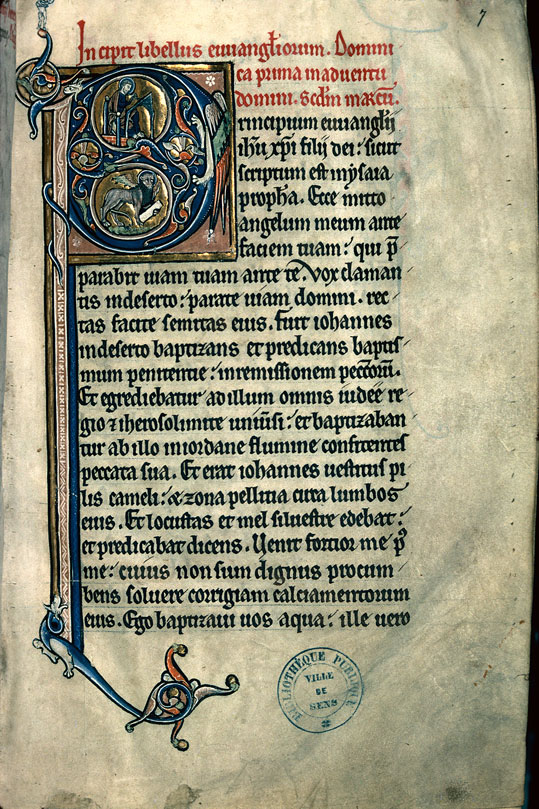 7
Incipit libellus euuangliorum. Domni
ca prima in aduentu
domini. Scdm marcum.
Principium euuanglij
ihu xpi filij dei: sicut
scriptum est in ysaia
propha. Ecce mitto
angelum meum ante
faciem tuam: qui p̄
parabit uiam tuam ante te. Vox claman
tis indeserto: parate uiam domini. rec
tas facite semitas eius. Fuit iohannes
indeserto baptizans et predicans baptis
mum penitentie: inremissionem peccorum.
Et egrediebatur ad illum omnis iudee re
gio ⁊ iherosolimite uniuersi: et baptizaban
tur ab illo iniordane flumine confitentes
peccata sua. Et erat iohannes uestitus pi
lis cameli: & zona pellicia circa lumbos
eius. Et locustas et mel siluestre edebat:
et predicabat dicens. Uenit fortior me p
me: cuius non sum dignus procum
bens soluere corrigiam calciamentorum
eius. Ego baptizaui uos aqua: ille uero
BIBLIOTHÈQUE PUBLIQUE
VILLE
DE
SENS